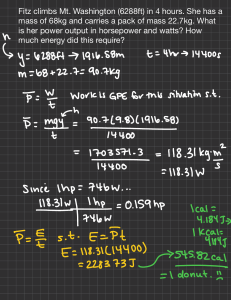 Fitz climbs Mt. Washington (6288ft) in 4 hours. She has a
mass of 68kg and carries a pack of mass 22.7kg. What
is her power output in horsepower and watts? How
much energy did this require?
h
y = 6288ft → 1916.58m t = 4hr → 14400s
m = 68 + 22.7 = 90.7kg
P = W/t Work is GPE for this situation s.t.
h
P = mgy/t = 90.7(9.8)(1916.58)/14400
= 1703571.3/14400 = 118.31 kg·m²/s
= 118.31W
Since 1hp = 746w...
118.31W | 1hp / 746w = 0.159hp
P = E/t s.t. E = Pt
E = 118.31(14400)
= 228373J
1cal = 4.184J
1kcal = 4184J
→ 545.82cal
= 1 donut.